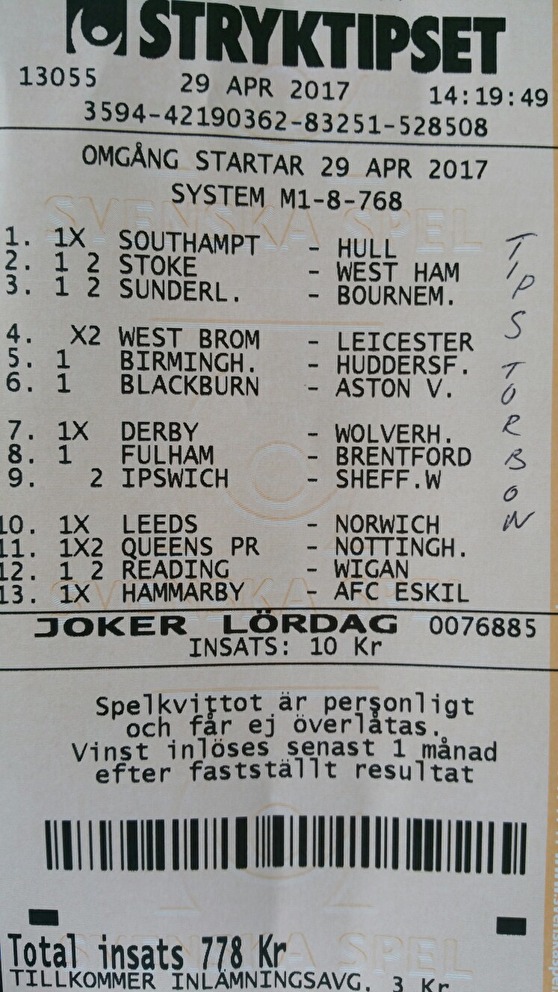 STRYKTIPSET
13055 29 APR 2017 14:19:49
3594-42190362-83251-528508
OMGÅNG STARTAR 29 APR 2017
SYSTEM M1-8-768
SVENSKA SPEL
1. 1X SOUTHAMPT - HULL
2. 1 2 STOKE - WEST HAM
3. 1 2 SUNDERL. - BOURNEM.
4. X2 WEST BROM - LEICESTER
5. 1 BIRMINGH. - HUDDERSF.
6. 1 BLACKBURN - ASTON V.
7. 1X DERBY - WOLVERH.
8. 1 FULHAM - BRENTFORD
9. 2 IPSWICH - SHEFF.W
10. 1X LEEDS - NORWICH
11. 1X2 QUEENS PR - NOTTINGH.
12. 1 2 READING - WIGAN
13. 1X HAMMARBY - AFC ESKIL
TIPSTORBOW
JOKER LÖRDAG 0076885
INSATS: 10 Kr
Spelkvittot är personligt
och får ej överlåtas.
Vinst inlöses senast 1 månad
efter fastställt resultat
Total insats 778 Kr
SVENSKA SPEL
TILLKOMMER INLÄMNINGSAVG. 3 Kr